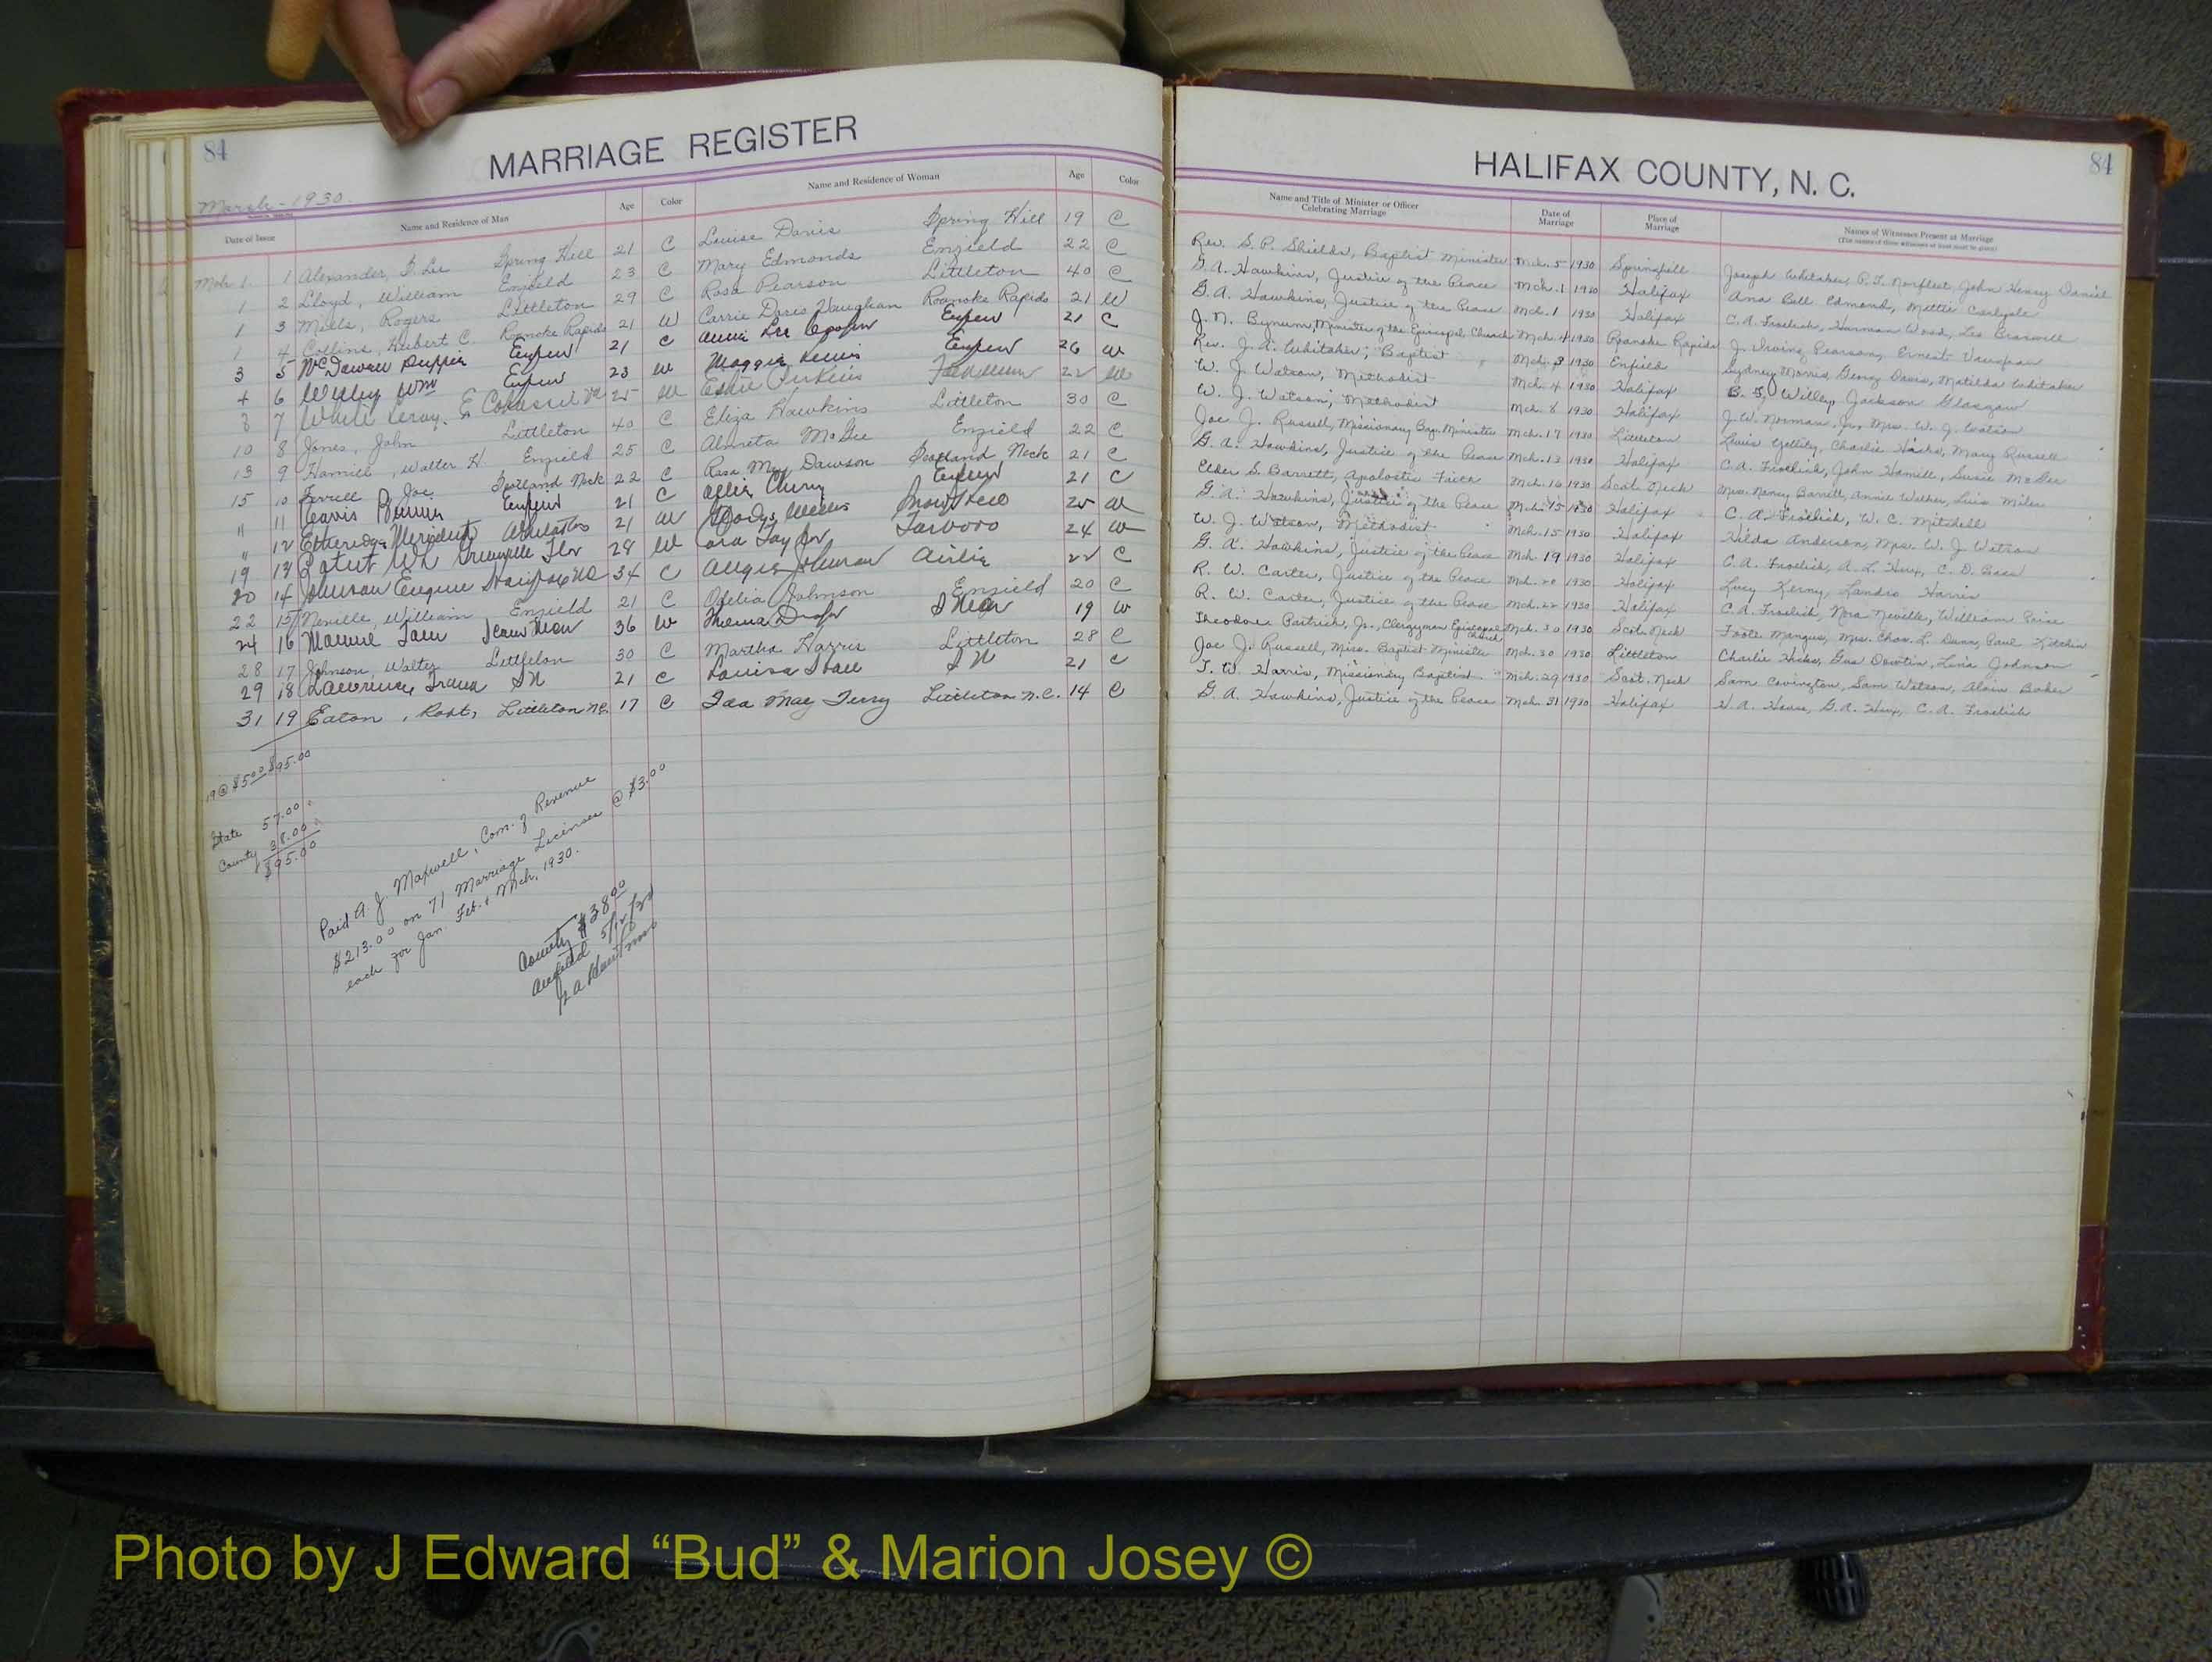 84
MARRIAGE REGISTER
March - 1930.
Date of Issue Name and Residence of Man Age Color Name and Residence of Woman Age Color
Mch 1. 1 Alexander, Lee Spring Hill 21 C Louise Davis Spring Hill 19 C
1 2 Lloyd, William Enfield 23 C Mary Edmonds Enfield 22 C
1 3 Mills, Rogers Littleton 29 C Rosa Pearson Littleton 40 C
1 4 Collins, Hubert C. Roanoke Rapids 21 W Carrie Davis Vaughan Roanoke Rapids 21 W
3 5 McDowell Enfield 21 C Annie Lee Enfield 21 C
4 6 Willey Wm Enfield 23 W Maggie Lewis Enfield 26 W
8 7 White Leroy. 25 W Perkins 22 W
10 8 Jones, John Littleton 40 C Eliza Hawkins Littleton 30 C
13 9 Hamill, Walter H. Enfield 25 C McGee Enfield 22 C
15 10 Ferrell Joe Scotland Neck 22 C Rosa May Dawson Scotland Neck 21 C
" 11 Enfield 21 C Cherry Enfield 21 C
" 12 Etheridge 21 W Snow Hill 25 W
19 13 Wh Greenville 28 W Cora Taylor Tarboro 24 W
20 14 Johnson Eugene Halifax NC 34 C Angie Johnson Airlie 22 C
22 15 Neville, William Enfield 21 C Odelia Johnson Enfield 20 C
24 16 36 W Thelma S Neck 19 W
28 17 Johnson, Walter Littleton 30 C Martha Harris Littleton 28 C
29 18 Lawrence S N 21 C Louisa S N 21 C
31 19 Eaton, Robt, Littleton N.C. 17 C Ida Mae Terry Littleton N.C. 14 C
19 @ $5.00 $95.00
State 57.00
County 38.00
$95.00
Paid A. J. Maxwell, Com. of Revenue
$213.00 on 71 Marriage Licenses @ $3.00
each for Jan. Feb. & Mch, 1930.
County $38.00
Audited 5/12/30
HALIFAX COUNTY, N. C.
84
Name and Title of Minister or Officer Celebrating Marriage Date of Marriage Place of Marriage Names of Witnesses Present at Marriage
(The names of three witnesses at least must be given)
Rev. S. P. Shields, Baptist Minister Mch. 5 1930 Springhill Joseph Whitaker, P. T. Norfleet, John Henry Daniel
G. A. Hawkins, Justice of the Peace Mch. 1 1930 Halifax Ana Bell Edmond, Mettie Carlyle
G. A. Hawkins, Justice of the Peace Mch. 1 1930 Halifax C. A. Froelich, Harman Wood, Leo Braswell
J. N. Bynum, Minister of the Episcopal Church Mch. 4 1930 Roanoke Rapids J. Irving Pearson, Ernest Vaughan
Rev. J. A. Whitaker, Baptist Mch. 3 1930 Enfield Sydney Morris, George Davis, Matilda Whitaker
W. J. Watson, Methodist Mch. 4 1930 Halifax B. F. Willey, Jackson Glasgow
W. J. Watson, Methodist Mch. 8 1930 Halifax J. W. Norman, Jr., Mrs. W. J. Watson
Joe J. Russell, Missionary Bap. Minister Mch. 17 1930 Littleton Louis Yellity, Charlie Hicks, Mary Russell
G. A. Hawkins, Justice of the Peace Mch. 13 1930 Halifax C. A. Froelich, John Hamill, Susie McGee
Elder S. Barrett, Apolostic Faith Mch. 16 1930 Scot. Neck Mrs. Nancy Barrett, Annie Walker, Luis Miles
G. A. Hawkins, Justice of the Peace Mch. 15 1930 Halifax C. A. Froelich, W. C. Mitchell
W. J. Watson, Methodist Mch. 15 1930 Halifax Hilda Anderson, Mrs. W. J. Watson
G. A. Hawkins, Justice of the Peace Mch. 19 1930 Halifax C. A. Froelich, A. L. Hux, C. D. Bass
R. W. Carter, Justice of the Peace Mch. 20 1930 Halifax Lucy Kerny, Landis Harris
R. W. Carter, Justice of the Peace Mch. 22 1930 Halifax C. A. Froelich, Nora Neville, William Price
Theodore Partrick, Jr., Clergyman Episcopal Church Mch. 30 1930 Scot. Neck Foote Mangus, Mrs. Chas. L. Dunn, Paul Kitchin
Joe J. Russell, Miss. Baptist Minister Mch. 30 1930 Littleton Charlie Hicks, Gus Dowtin, Lina Johnson
T. W. Harris, Missionary Baptist Mch. 29 1930 Scot. Neck Sam Covington, Sam Watson, Alvin Baker
G. A. Hawkins, Justice of the Peace Mch. 31 1930 Halifax H. A. House, G. A. Hux, C. A. Froelich
Photo by J Edward “Bud” & Marion Josey ©